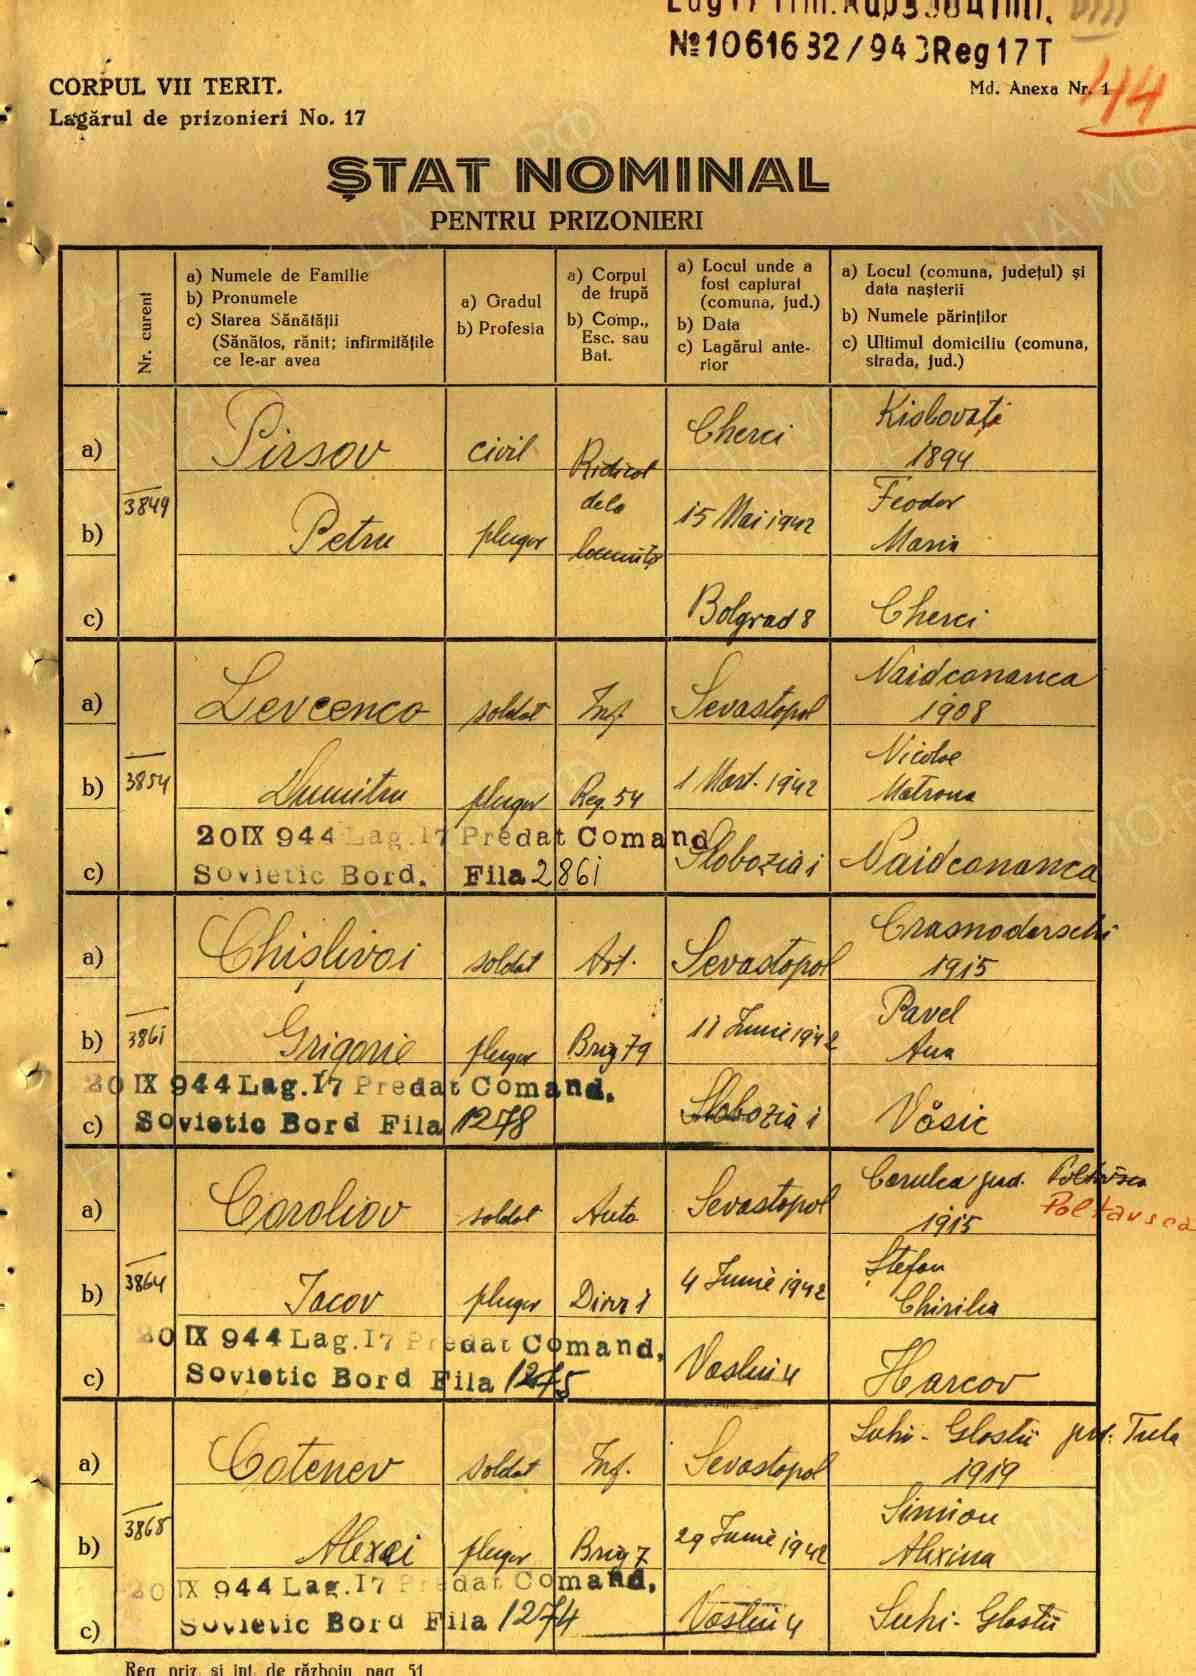 Lag 17 Trm. Adp 3984 Int.
№1061632/943Reg17T
CORPUL VII TERIT.
Md. Anexa Nr. 1
44
Lagărul de prizonieri No. 17
ȘTAT NOMINAL
PENTRU PRIZONIERI
Nr. curent
a) Numele de Familie
b) Pronumele
c) Starea Sănătății
(Sănătos, rănit; infirmitățile
ce le-ar avea
a) Gradul
b) Profesia
a) Corpul
de trupă
b) Comp.,
Esc. sau
Bat.
a) Locul unde a
fost capturat
(comuna, jud.)
b) Data
c) Lagărul ante-
rior
a) Locul (comuna, județul) și
data nașterii
b) Numele părinților
c) Ultimul domiciliu (comuna,
strada, jud.)
a) Pirsov civil Ridicat Cherci Kislovați
1894
3849
b) Petru plugar dela 15 Mai 1942 Feodor
Maria
c) Bolgrad 8 Cherci
a) Levcenco soldat Inf. Sevastopol Naidconanca
1908
3854
b) Dumitru plugar Reg. 54 1 Mart. 1942 Nicolae
Matrona
20 IX 944 Lag. 17 Predat Comand.
c) Sovietic Bord. Fila 2861 Slobozia 1 Naidconanca
a) Chislivoi soldat Art. Sevastopol Crasnodarschi
1915
3861
b) Grigorie plugar Brig 79 11 Iunie 1942 Pavel
Ana
20 IX 944 Lag. 17 Predat Comand.
c) Sovietic Bord Fila 1278 Slobozia 1 Văsic
a) Coroliov soldat Auto Sevastopol jud. Poltavsca
1915 Poltavsca
3864
b) Iacov plugar Diviz 1 4 Iunie 1942 Ștefan
Chirilia
20 IX 944 Lag. 17 Predat Comand.
c) Sovietic Bord Fila 1275 Vaslui 4 Harcov
a) Cotenev soldat Inf. Sevastopol Suhi-Glostii jud. Tula
1919
3868
b) Alexei plugar Brig 7 29 Iunie 1942 Simion
Alexina
20 IX 944 Lag. 17 Predat Comand.
c) Sovietic Bord Fila 1274 Vaslui 4 Suhi-Glostii
Reg. priz. și int. de războiu pag. 51